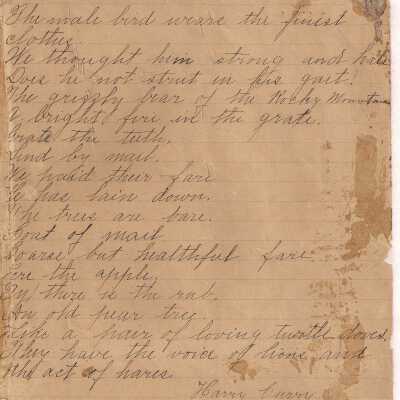 The male bird wears the finest
clothes
We thought him strong and hale
Does he not strut in his gait!
The grizzly bear of the Rocky Mountains
A bright fire in the grate.
Grate the teeth.
Send by mail.
We paid their fare
He has lain down.
The trees are bare.
Coat of mail
Coarse but healthful fare
Pare the apple.
there is the
An old pear tree.
Like a pair of loving turtle doves.
They have the voice of lions and
the act of hares.
Harry Curry